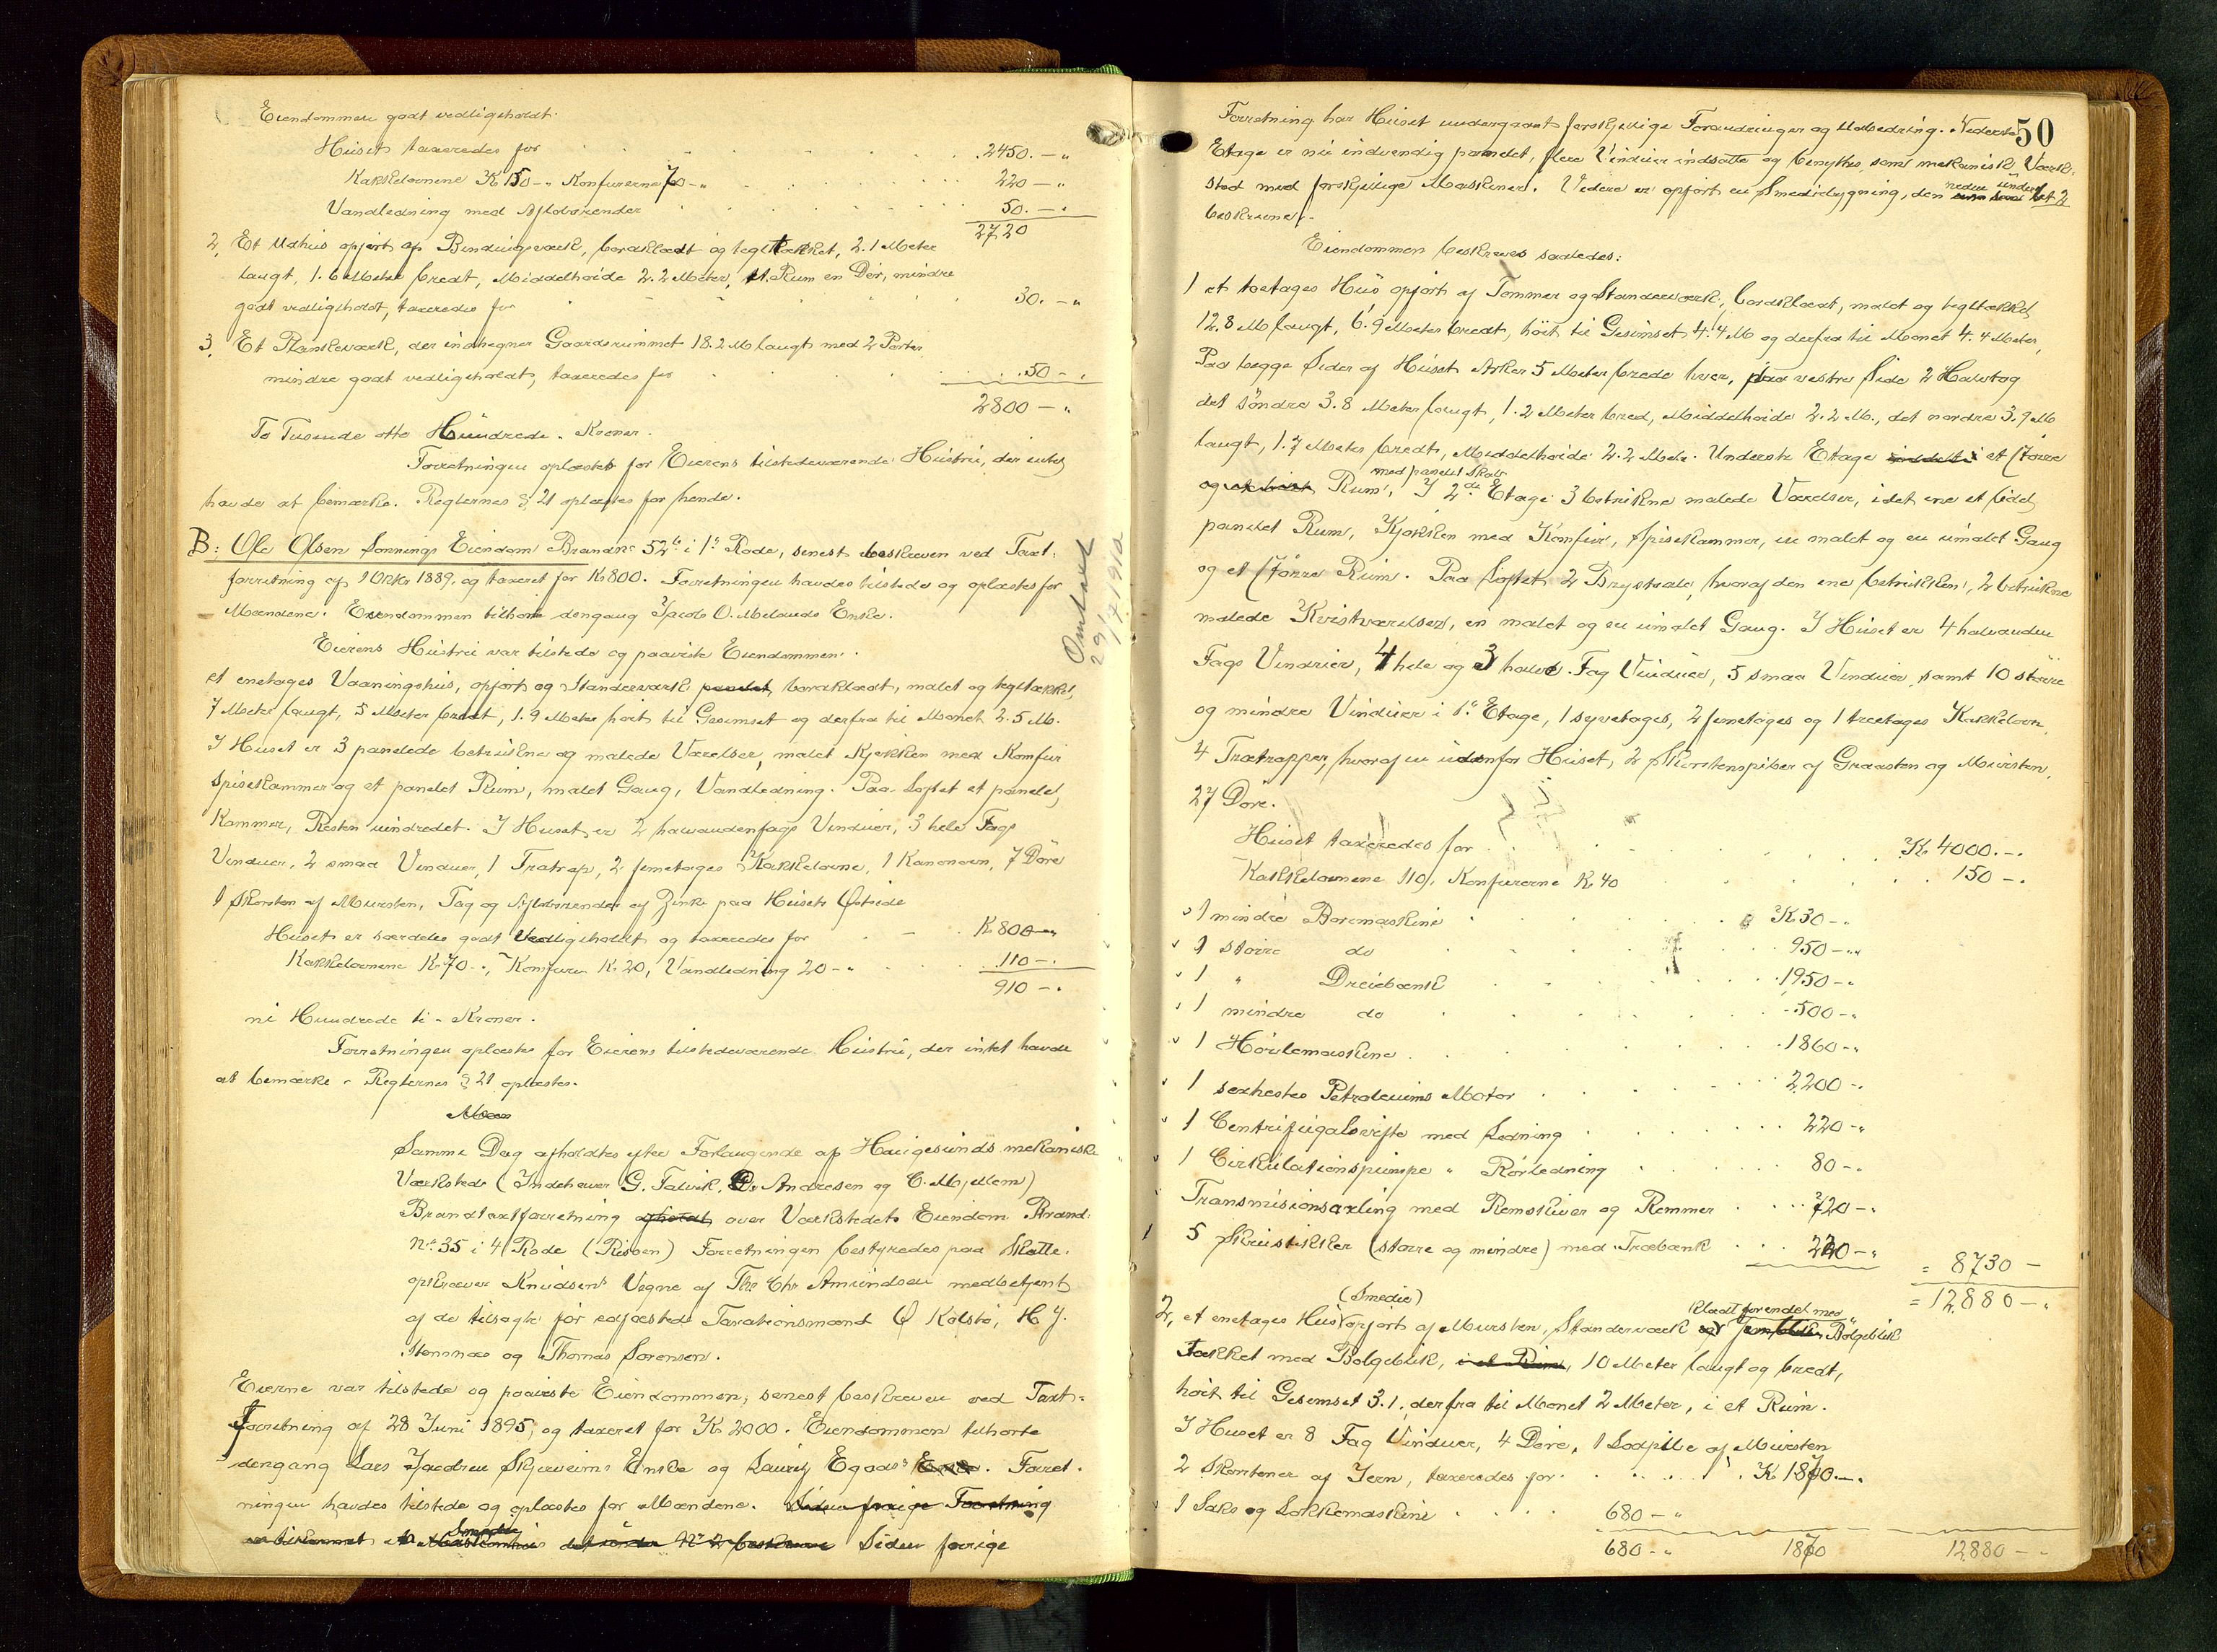 Eiendommen godt vedligeholdt.
Huset taxeredes for . . . 2450.-"
Kakkelovnene Kr 150-" Konfurerne 70-" . . . 220-"
Vandledning med Afløbsrender . . . 50.-"
2720
2, Et Udhus opført af Bindingsværk, bordklædt og tegltækket, 2.1 Meter
langt, 1.6 Meter bredt, Middelhøide 2.2 Meter, et Rum en Dør, mindre
godt vedligeholdt, taxeredes for . . . 30.-"
3, Et Plankeværk, der indhegner Gaardsrummet 18.2 M langt med 2 Porter
mindre godt vedligeholdt, taxeredes for . . . 50-"
2800-"
To Tusende otte Hundrede. Kroner.
Forretningen oplæstes for Eierens tilstedeværende Hustru, der intet
havde at bemærke. Reglernes § 21 oplæstes for hende.
B: Ole Olsen Sonnings Eiendom Brandnr 52b i 1s Rode, senest beskreven ved Taxt-
forretning af 1 Oktbr 1889, og taxeret for Kr 800. Forretningen havdes tilstede og oplæstes for
Mændene. Eiendommen tilhørte dengang Jacob O. Melands Enke.
Eierens Hustru var tilstede og paaviste Eiendommen.
Omtaxt
29/7 1910
et enetages Vaaningshus, opført og Standerværk panelet bordklædt, malet og tegltækket,
7 Meter langt, 5 Meter bredt, 1.9 Meter høit til Gesimset og derfra til Mønet 2.5 M.
I Huset er 3 panelede betrukne og malede Værelser, malet Kjøkken med Komfur
Spisekammer og et panelet Rum, malet Gang, Vandledning. Paa Loftet et panelet
Kammer, Resten uindredet. I Huset er 2 halvandenfags Vinduer, 3 hele Fags
Vinduer, 2 smaa Vinduer, 1 Trætrap, 2 femetages Kakkelovne, 1 Kanonovn, 7 Døre
1 Skorsten af Mursten, Tag og Afløbsrender af Zink paa Husets Østside
Huset er særdeles godt vedligeholdt og taxeredes for . . . Kr 800-"
Kakkelovnene Kr 70-", Komfuren Kr. 20, Vandledning 20-" . . . 110-"
910-"
ni Hundrede ti - Kroner.
Forretningen oplæstes for Eierens tilstedeværende Hustru, der intet havde
at bemærke - Reglernes § 21 oplæstes.
Samme Dag afholdtes efter Forlangende af Haugesunds mekaniske
Værksted (Indehaver G. Falvik, O. Andresen og C. Mjellem)
Brandtaxtforretning afholdt over Værkstedets Eiendom Brand-
No 35 i 4 Rode (Risøen) Forretningen bestyredes paa Skatte-
opkræver Knudsens Vegne af Ths. Chr Amundsen medbetjent
af de tilsagte før edfæstede Taxationsmænd O Kolstø, H J.
Stensnæs og Thomas Sørensen.
Eierne var tilstede og paaviste Eiendommen, senest beskreven ved Taxt-
Forretning af 28 Juni 1895, og taxeret for Kr 2000. Eiendommen tilhørte
dengang Lars Jacobsen Skjerveims Enke og Lauritz Egaas Enke. Forret-
ningen havdes tilstede og oplæstes for Mændene. Siden forrige Forretning
Smedie
er tilkommet det under No 2 beskrevne Siden forrige
50
Forretning har Huset undergaaet forskjellige Forandringer og Udbedring. Nederste
Etage er nu indvendig panelet, flere Vinduer indsatte og benyttes som mekanisk Værk-
sted med forskjellige Maskiner. Videre er opført en Smediebygning, den neden under Lit 2
beskrevne.
Eiendommen beskreves saaledes:
1 et toetages Hus opført af Tømmer og Standerværk, bordklædt, malet og tegltækket
12.8 M langt, 6.9 Meter bredt, høit til Gesimset 4.4 M og derfra til Mønet 4.4 Meter,
Paa begge Sider af Huset Arker 5 Meter brede hver, paa vestre Side 2 Halvtag
det søndre 3.8 Meter langt, 1.2 Meter bred, Middelhøide 2.2 M., det nordre 3.9 M
langt, 1.7 Meter bredt, Middelhøide 2.2 Meter. Underste Etage inddelt i et større
med panelet Skab
og et lidet Rum, I 2de Etage 3 betrukne malede Værelser, i det ene et lidet
panelet Rum, Kjøkken med Komfur, Spisekammer, en malet og en umalet Gang
og et større Rum. Paa Loftet 2 Brystsale, hvoraf den ene betrukken, 2 betrukne
malede Kvistværelser, en malet og en umalet Gang. I Huset er 4 halvanden
Fags Vinduer, 4 hele og 3 halve Fag Vinduer, 5 smaa Vinduer samt 10 større
og mindre Vinduer i 1s Etage, 1 syvetages, 2 femetages og 1 treetages Kakkelovn,
4 Trætrapper, hvoraf en udenfor Huset, 2 Skorstenspiber af Graasten og Mursten,
27 Døre.
Huset taxeredes for . . . Kr 4000.-.
Kakkelovnene 110, Konfurerne Kr 40 . . . 150-.
1 mindre Boremaskine . . . Kr 30-.
1 større do . . . 950-"
1 " Dreiebænk . . . 1950-"
1 mindre do . . . 500-"
1 Høvlemaskine . . . 1860-"
1 sexhestes Petroleums Motor . . . 2200-"
1 Centrifugalsvifte med Ledning . . . 220-"
1 Cirkulationspumpe " Rørledning . . . 80-"
Transmisionsaxling med Remskiver og Remmer . . . 720-"
5 Skruestikker (større og mindre) med Træbænk . . . 220-" = 8730-
= 12880-"
(Smedie)
klædt forendel med
2, et enetages Hus opført af Mursten, Standerværk og Bølgeblik
Tækket med Bølgeblik, i et Rum, 10 Meter langt og bredt,
høit til Gesemset 3.1, derfra til Mønet 2 Meter, i et Rum.
I Huset er 8 Fag Vinduer, 4 Døre, 1 Lodpibe af Mursten
2 Skorstener af Jern, taxeredes for . . . Kr 1870-.
1 Saks og Lokkemaskine . . . 680-"
680-" 1870 12880-"